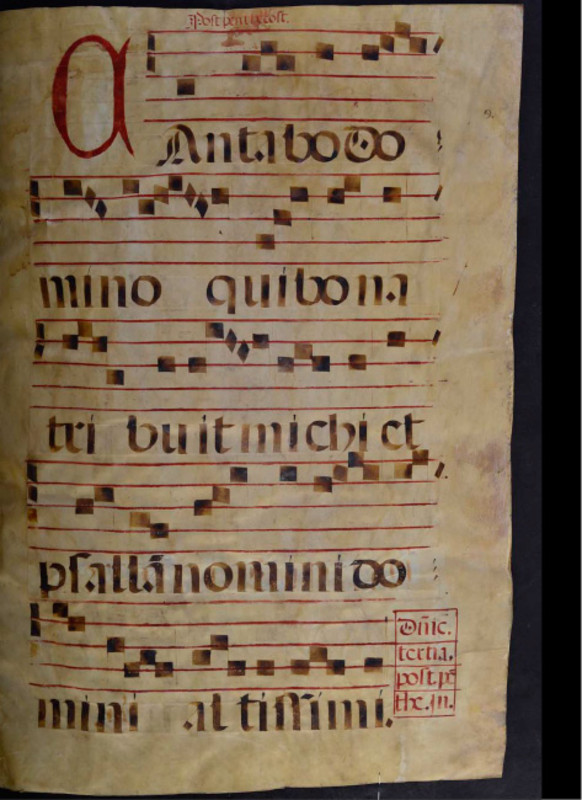 Post pentecost.
CAntabo do
mino qui bona
tri buit michi et
psallā nomini do
mini altissimi.
Dn̄ic.
tertia.
post. pē
the. in.